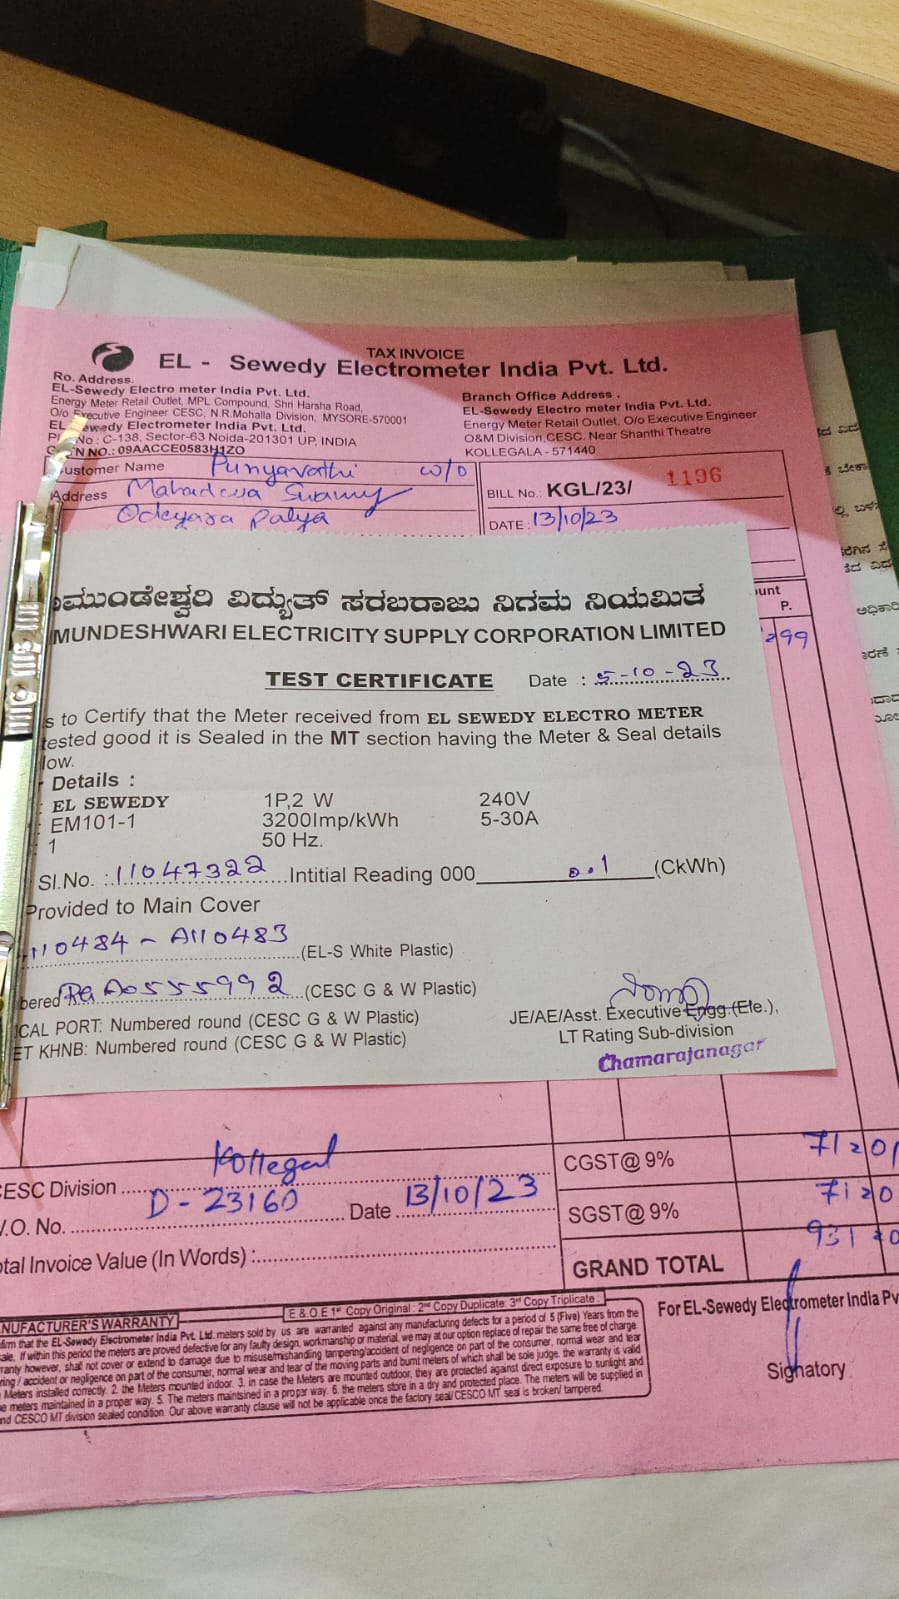 TAX INVOICE
EL - Sewedy Electrometer India Pvt. Ltd.
Ro. Address.
EL-Sewedy Electro meter India Pvt. Ltd.
Energy Meter Retail Outlet, MPL Compound, Shri Harsha Road,
O/o Executive Engineer CESC, N.R.Mohalla Division, MYSORE-570001
EL-Sewedy Electrometer India Pvt. Ltd.
No : C-138, Sector-63 Noida-201301 UP, INDIA
NO.: 09AACCE0583H1ZO
Branch Office Address .
EL-Sewedy Electro meter India Pvt. Ltd.
Energy Meter Retail Outlet, O/o Executive Engineer
O&M Division,CESC. Near Shanthi Theatre
KOLLEGALA - 571440
Customer Name Punyavathi w/o
Address Mahadeva Swamy
Odeyara Palya
BILL No.: KGL/23/ 1196
DATE : 13/10/23
P.
299
ಮುಂಡೇಶ್ವರಿ ವಿದ್ಯುತ್ ಸರಬರಾಜು ನಿಗಮ ನಿಯಮಿತ
MUNDESHWARI ELECTRICITY SUPPLY CORPORATION LIMITED
TEST CERTIFICATE Date : 5-10-23
s to Certify that the Meter received from EL SEWEDY ELECTRO METER
tested good it is Sealed in the MT section having the Meter & Seal details
low.
Details :
: EL SEWEDY 1P,2 W 240V
: EM101-1 3200Imp/kWh 5-30A
: 1 50 Hz.
Sl.No. : 11047322 Intitial Reading 000 0.1 (CkWh)
Provided to Main Cover
110484 - A110483 (EL-S White Plastic)
bered A0555992 (CESC G & W Plastic)
ICAL PORT: Numbered round (CESC G & W Plastic)
ET KHNB: Numbered round (CESC G & W Plastic)
JE/AE/Asst. Executive Engg.(Ele.),
LT Rating Sub-division
Chamarajanagar
CESC Division Kollegal
V.O. No. D - 23160 Date 13/10/23
otal Invoice Value (In Words) :
CGST@ 9% 7120
SGST@ 9% 7120
GRAND TOTAL 931
E & O E 1st Copy Original : 2nd Copy Duplicate: 3rd Copy Triplicate .
For EL-Sewedy Electrometer India Pv
Signatory
NUFACTURER'S WARRANTY
firm that the EL-Sewedy Electrometer India Pvt. Ltd. meters sold by us are warranted against any manufacturing defects for a period of 5 (Five) Years from the
sale. If within this period the meters are proved defective for any faulty design, workmanship or material, we may at our option replace of repair the same free of charge.
rranty however, shall not cover or extend to damage due to misuse/mishandling tampering/accident of negligence on part of the consumer, normal wear and tear
ring / accident or negligence on part of the consumer, normal wear and tear of the moving parts and burnt meters of which shall be sole judge. the warranty is valid
Meters installed correctly. 2. the Meters mounted indoor. 3. in case the Meters are mounted outdoor, they are protected against direct exposure to sunlight and
e meters maintained in a proper way. 5. The meters maintsined in a proper way. 6. the meters store in a dry and protected place. The meters will be supplied in
nd CESCO MT division sealed condition. Our above warranty clause will not be applicable once the factory seal/CESCO MT seal is broken/ tampered.